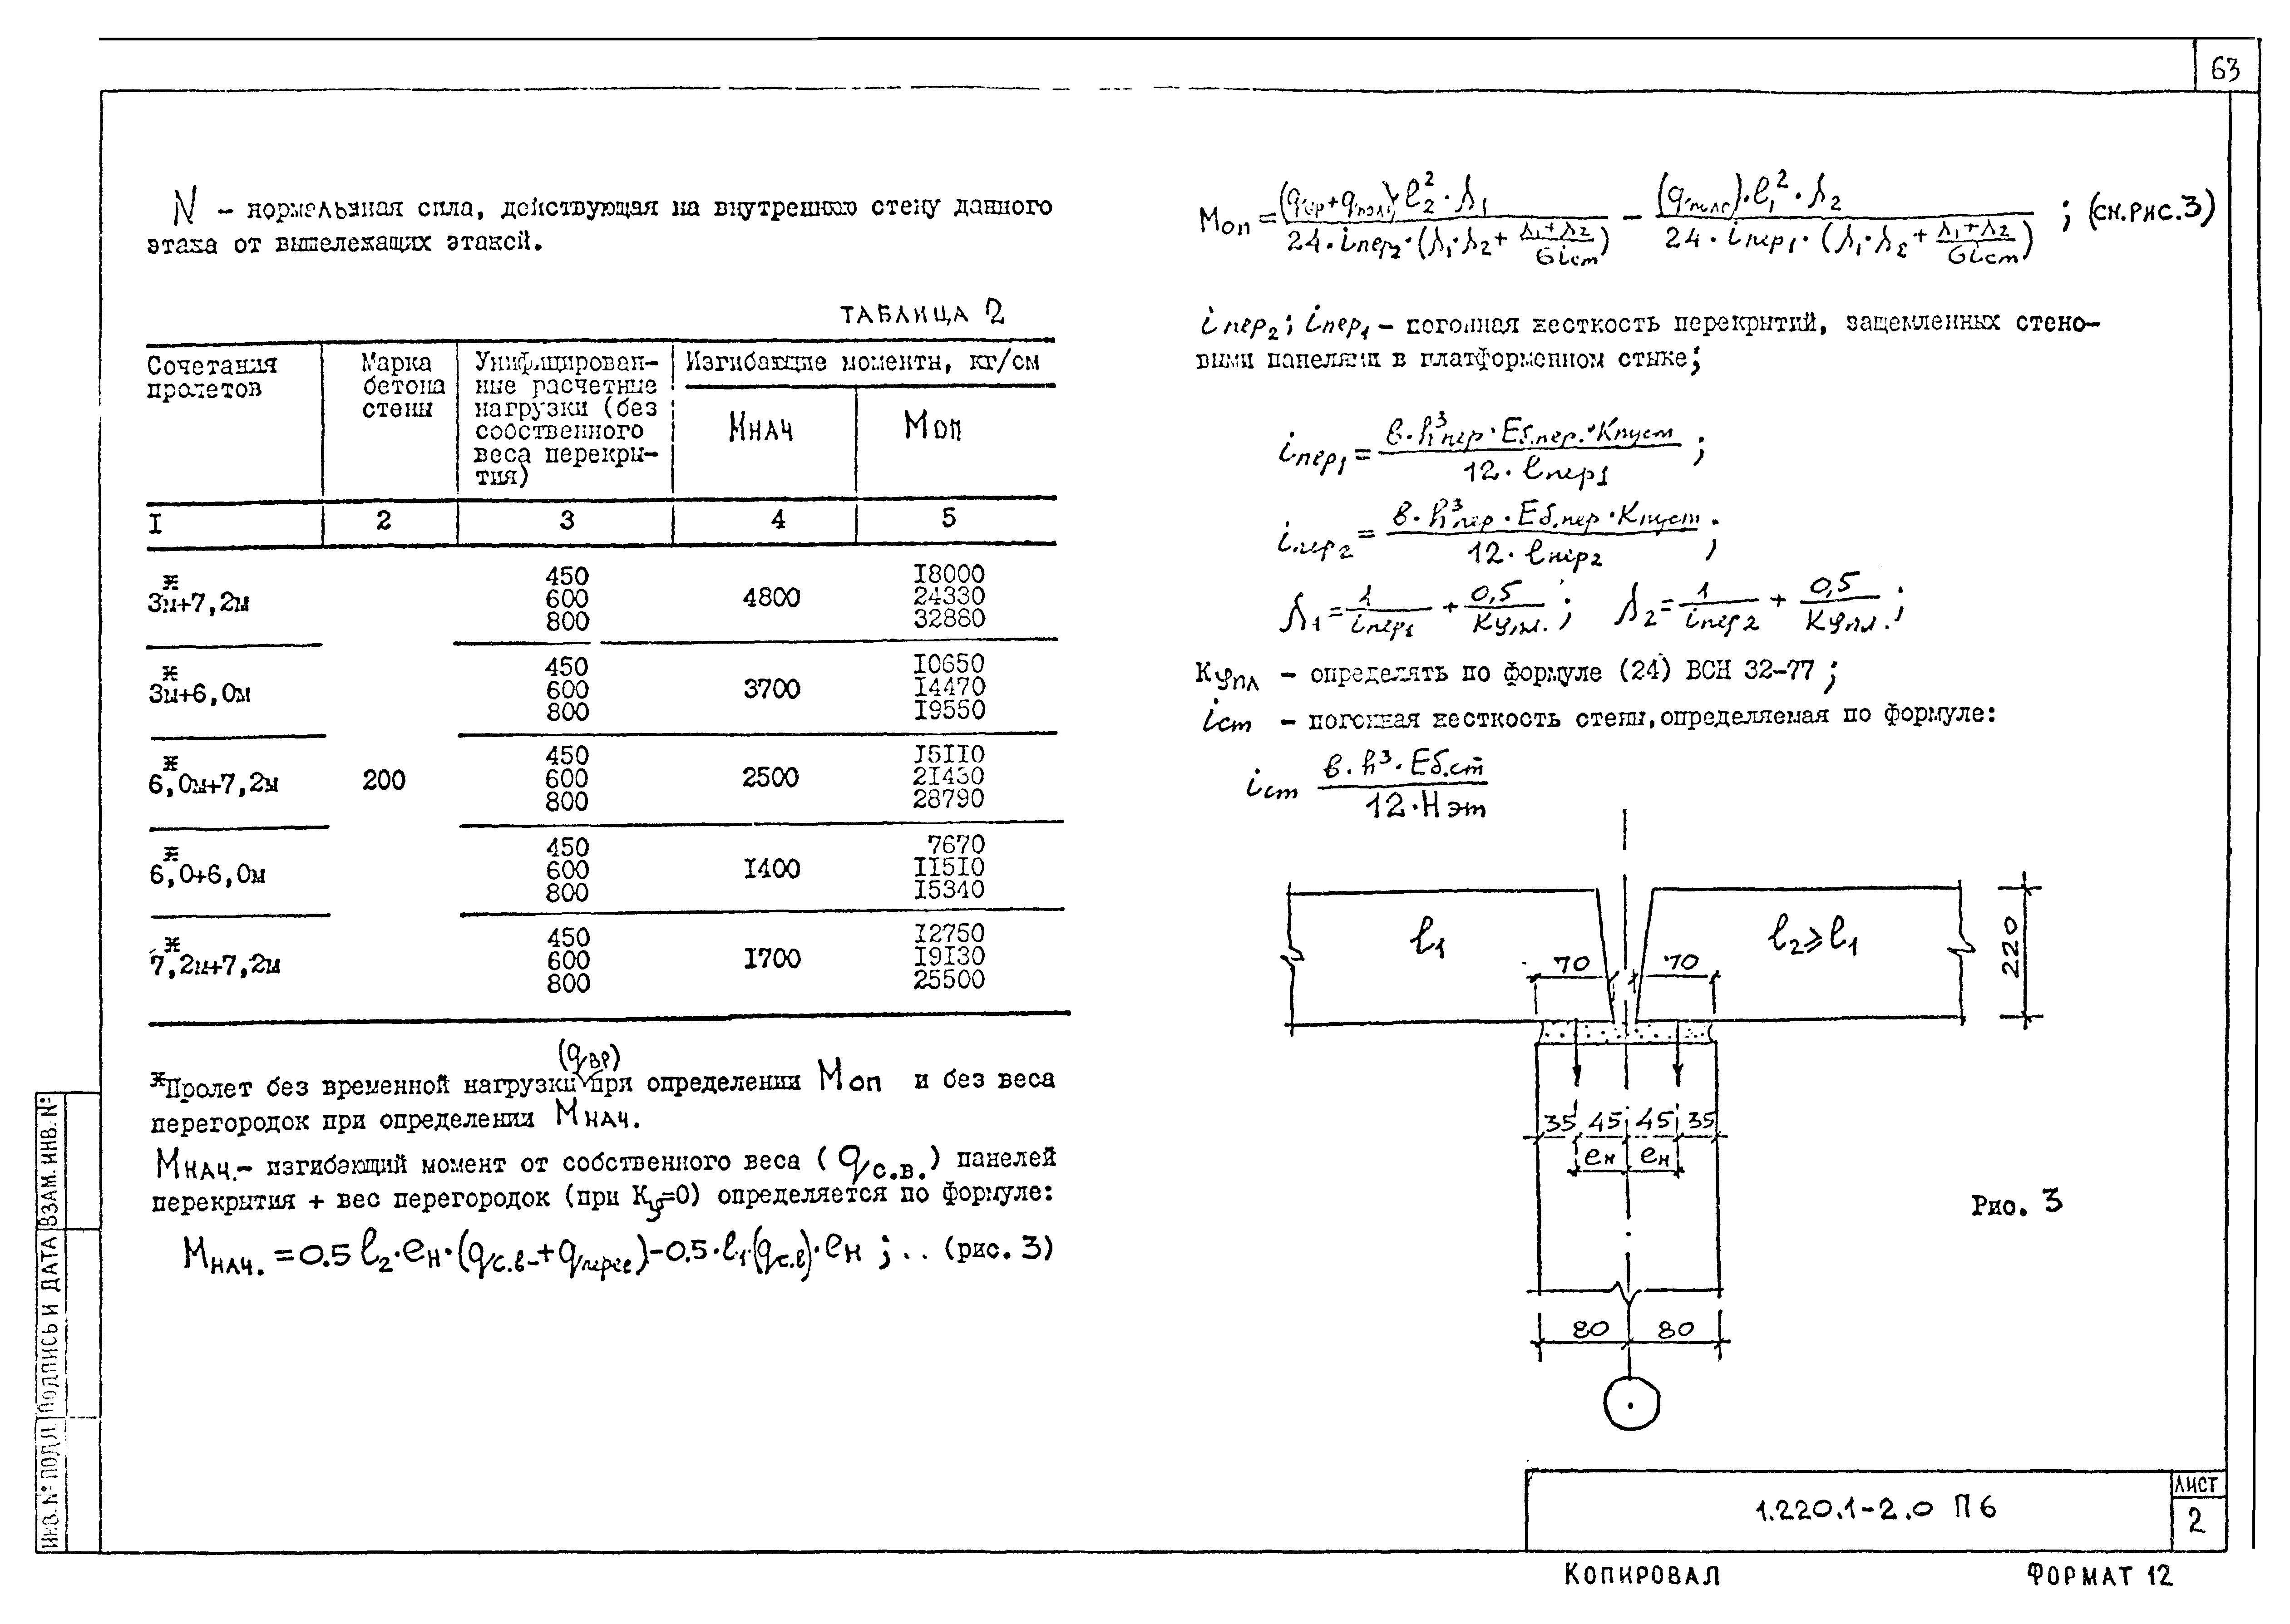 63
N – нормальная сила, действующая на внутреннюю стену данного
этажа от вышележащих этажей.
ТАБЛИЦА 2
Сочетания пролетов | Марка бетона стены | Унифицирован-ные расчетные нагрузки (без собственного веса перекры-тия) | Изгибающие моменты, кг/см
Mнач | Mоп
I | 2 | 3 | 4 | 5
ж
3м+7,2м | 450 600 800 | 4800 | I8000 24330 32880
ж
3м+6,0м | 450 600 800 | 3700 | I0650 I4470 I9550
ж
6,0м+7,2м | 200 | 450 600 800 | 2500 | I5II0 2I430 28790
ж
6,0+6,0м | 450 600 800 | I400 | 7670 II5I0 I5340
ж
7,2м+7,2м | 450 600 800 | I700 | I2750 I9I30 25500
(qвр)
жПролет без временной нагрузки при определении Mоп и без веса
перегородок при определении Mнач.
Mнач.– изгибающий момент от собственного веса (qс.в.) панелей
перекрытия + вес перегородок (при Kφ=0) определяется по формуле:
Mнач. = 0.5 ℓ2·eн·(qс.в.+qперег)–0.5·ℓ1·(qс.в)·eн ; .. (рис. 3)
Mоп = (qвр+qполн)·ℓ2²·λ1 / 24·iпер2·(λ1·λ2+ λ1+λ2 / 6iст) – (qполн)·ℓ1²·λ2 / 24·iпер1·(λ1·λ2+ λ1+λ2 / 6iст) ; (см.рис.3)
iпер2; iпер1 – погонная жесткость перекрытий, защемленных стено-
выми панелями в платформенном стыке;
iпер1 = в·h³пер·Eб.пер.·Kпуст / 12·ℓпер1 ;
iпер2 = в·h³пер·Eб.пер·Kпуст / 12·ℓпер2 ;
λ1 = 1 / iпер1 + 0,5 / Kφпл. ; λ2 = 1 / iпер2 + 0,5 / Kφпл. ;
Kφпл – определять по формуле (24) ВСН 32–77 ;
iст – погонная жесткость стены, определяемая по формуле:
iст в·h³·Eб.ст / 12·Hэт
ℓ1
ℓ2≥ℓ1
220
70 70
35 45 45 35
eн eн
Рис. 3
80 80
1.220.1-2.0 П6
ЛИСТ
2
КОПИРОВАЛ
ФОРМАТ 12
ИНВ.№ ПОДЛ
ПОДПИСЬ И ДАТА
ВЗАМ.ИНВ.№